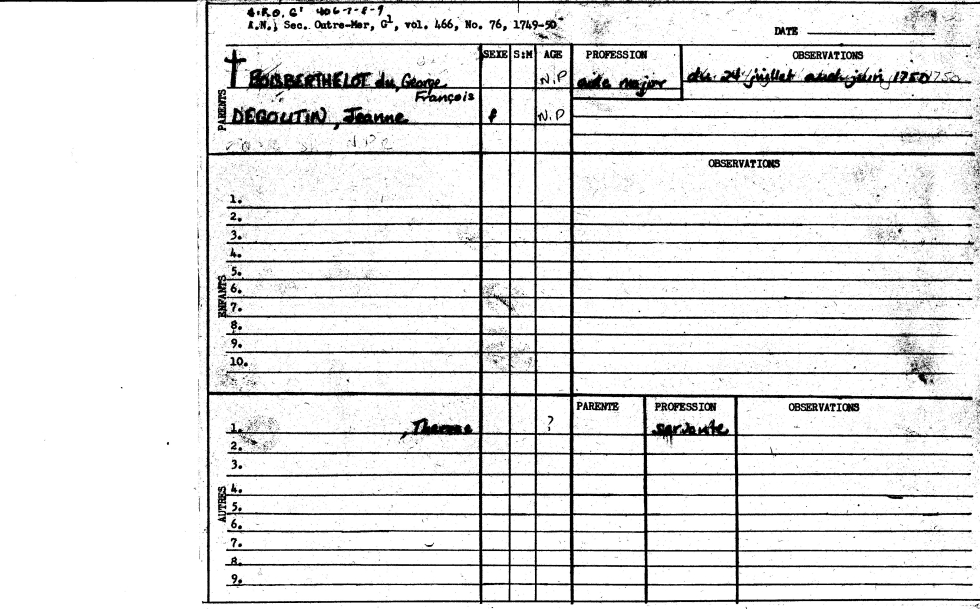 G¹ 406-7-8-9
A.N., Sec. Outre-Mer, G¹, vol. 466, No. 76, 1749-50
DATE
SEXE S:M AGE PROFESSION OBSERVATIONS
PARENTS
BOISBERTHELOT du, George N.P aide major du 24 juillet 1750
François
DEGOUTIN, Jeanne f N.P
OBSERVATIONS
ENFANTS
1.
2.
3.
4.
5.
6.
7.
8.
9.
10.
PARENTE PROFESSION OBSERVATIONS
AUTRES
1. , Therese ? servante
2.
3.
4.
5.
6.
7.
8.
9.